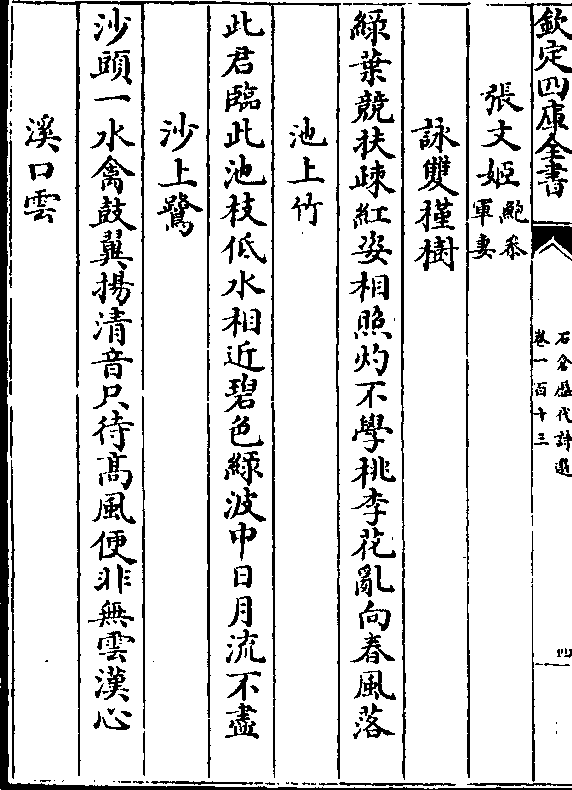 欽定四庫全書
石倉歷代詩選
卷一百十三
四
張文姬鮑參軍妻
詠雙槿樹
綠葉競扶疎紅姿相照灼不學桃李花亂向春風落
池上竹
此君臨此池枝低水相近碧色綠波中日月流不盡
沙上鷺
沙頭一水禽鼓翼揚清音只待高風便非無雲漢心
溪口雲